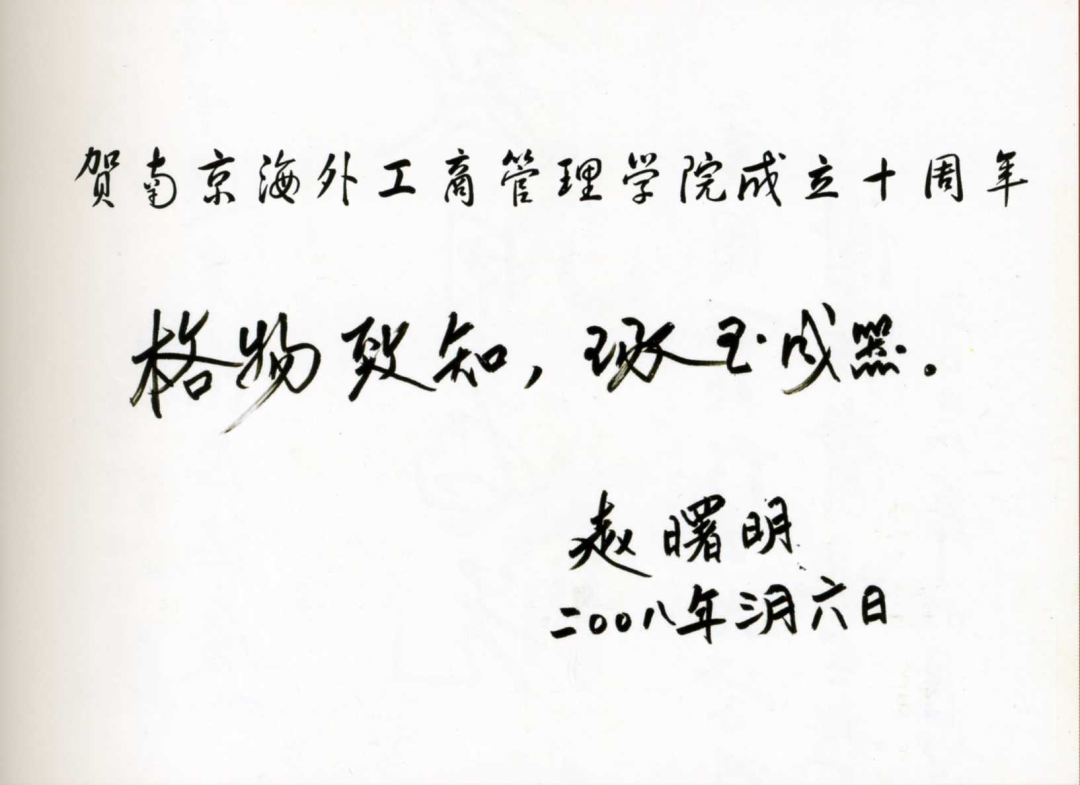 贺南京海外工商管理学院成立十周年
格物致知，琢玉成器。
赵曙明
二〇〇八年三月六日